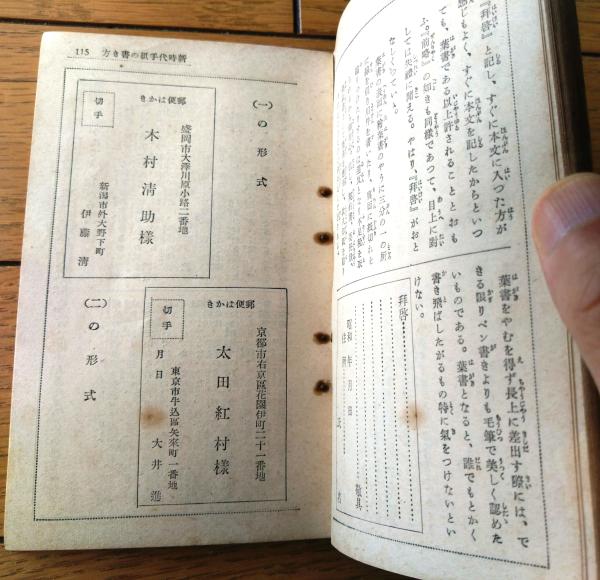 『拜啓』と記し、すぐに本文に入つた方が
感じもよく、すぐに本文を記したからといつ
ても、葉書である以上許されることとおも
ふ。『前略』の如きも同樣であつて、目上に對
しては失禮に聞える。やはり『拜啓』がおと
なしくつてよい。
葉書をやむを得ず長上に差出す際には、で
きる限りペン書きよりも毛筆で美しく認めた
いものである。葉書となると、誰でもとかく
書き飛ばしたがるもの特に氣をつけないとい
けない。
拜啓
敬具
昭和 年 月 日
115 新時代手紙の書き方
(一)の形式
郵便はかき
切手
盛岡市大澤川原小路二番地
木村清助樣
新潟市外大野下町
伊藤清
(二)の形式
郵便はかき
切手
京都市右京區花園伊町二十一番地
太田紅村樣
東京市牛込區矢來町一番地
月日 大井進